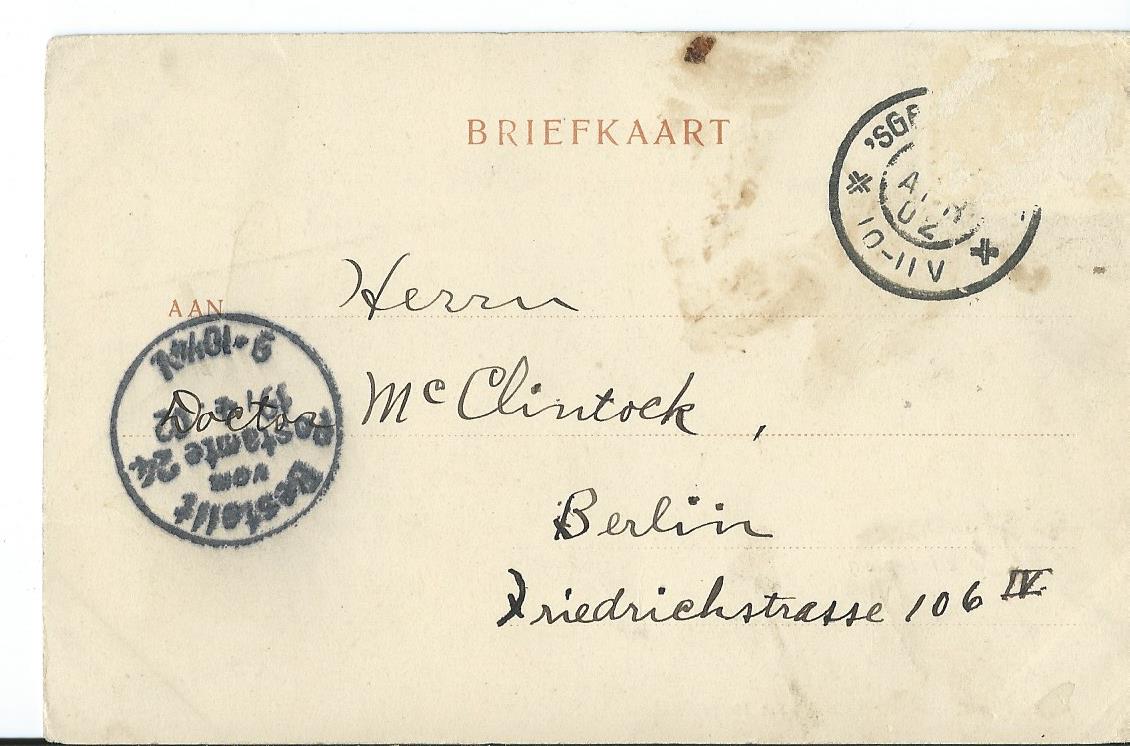 BRIEFKAART
'SGR
10-11V
02
AAN
Herrn
Doctor Mc Clintock,
Berlin
Friedrichstrasse 106 IV.
Bestellt
vom
Postamte 24